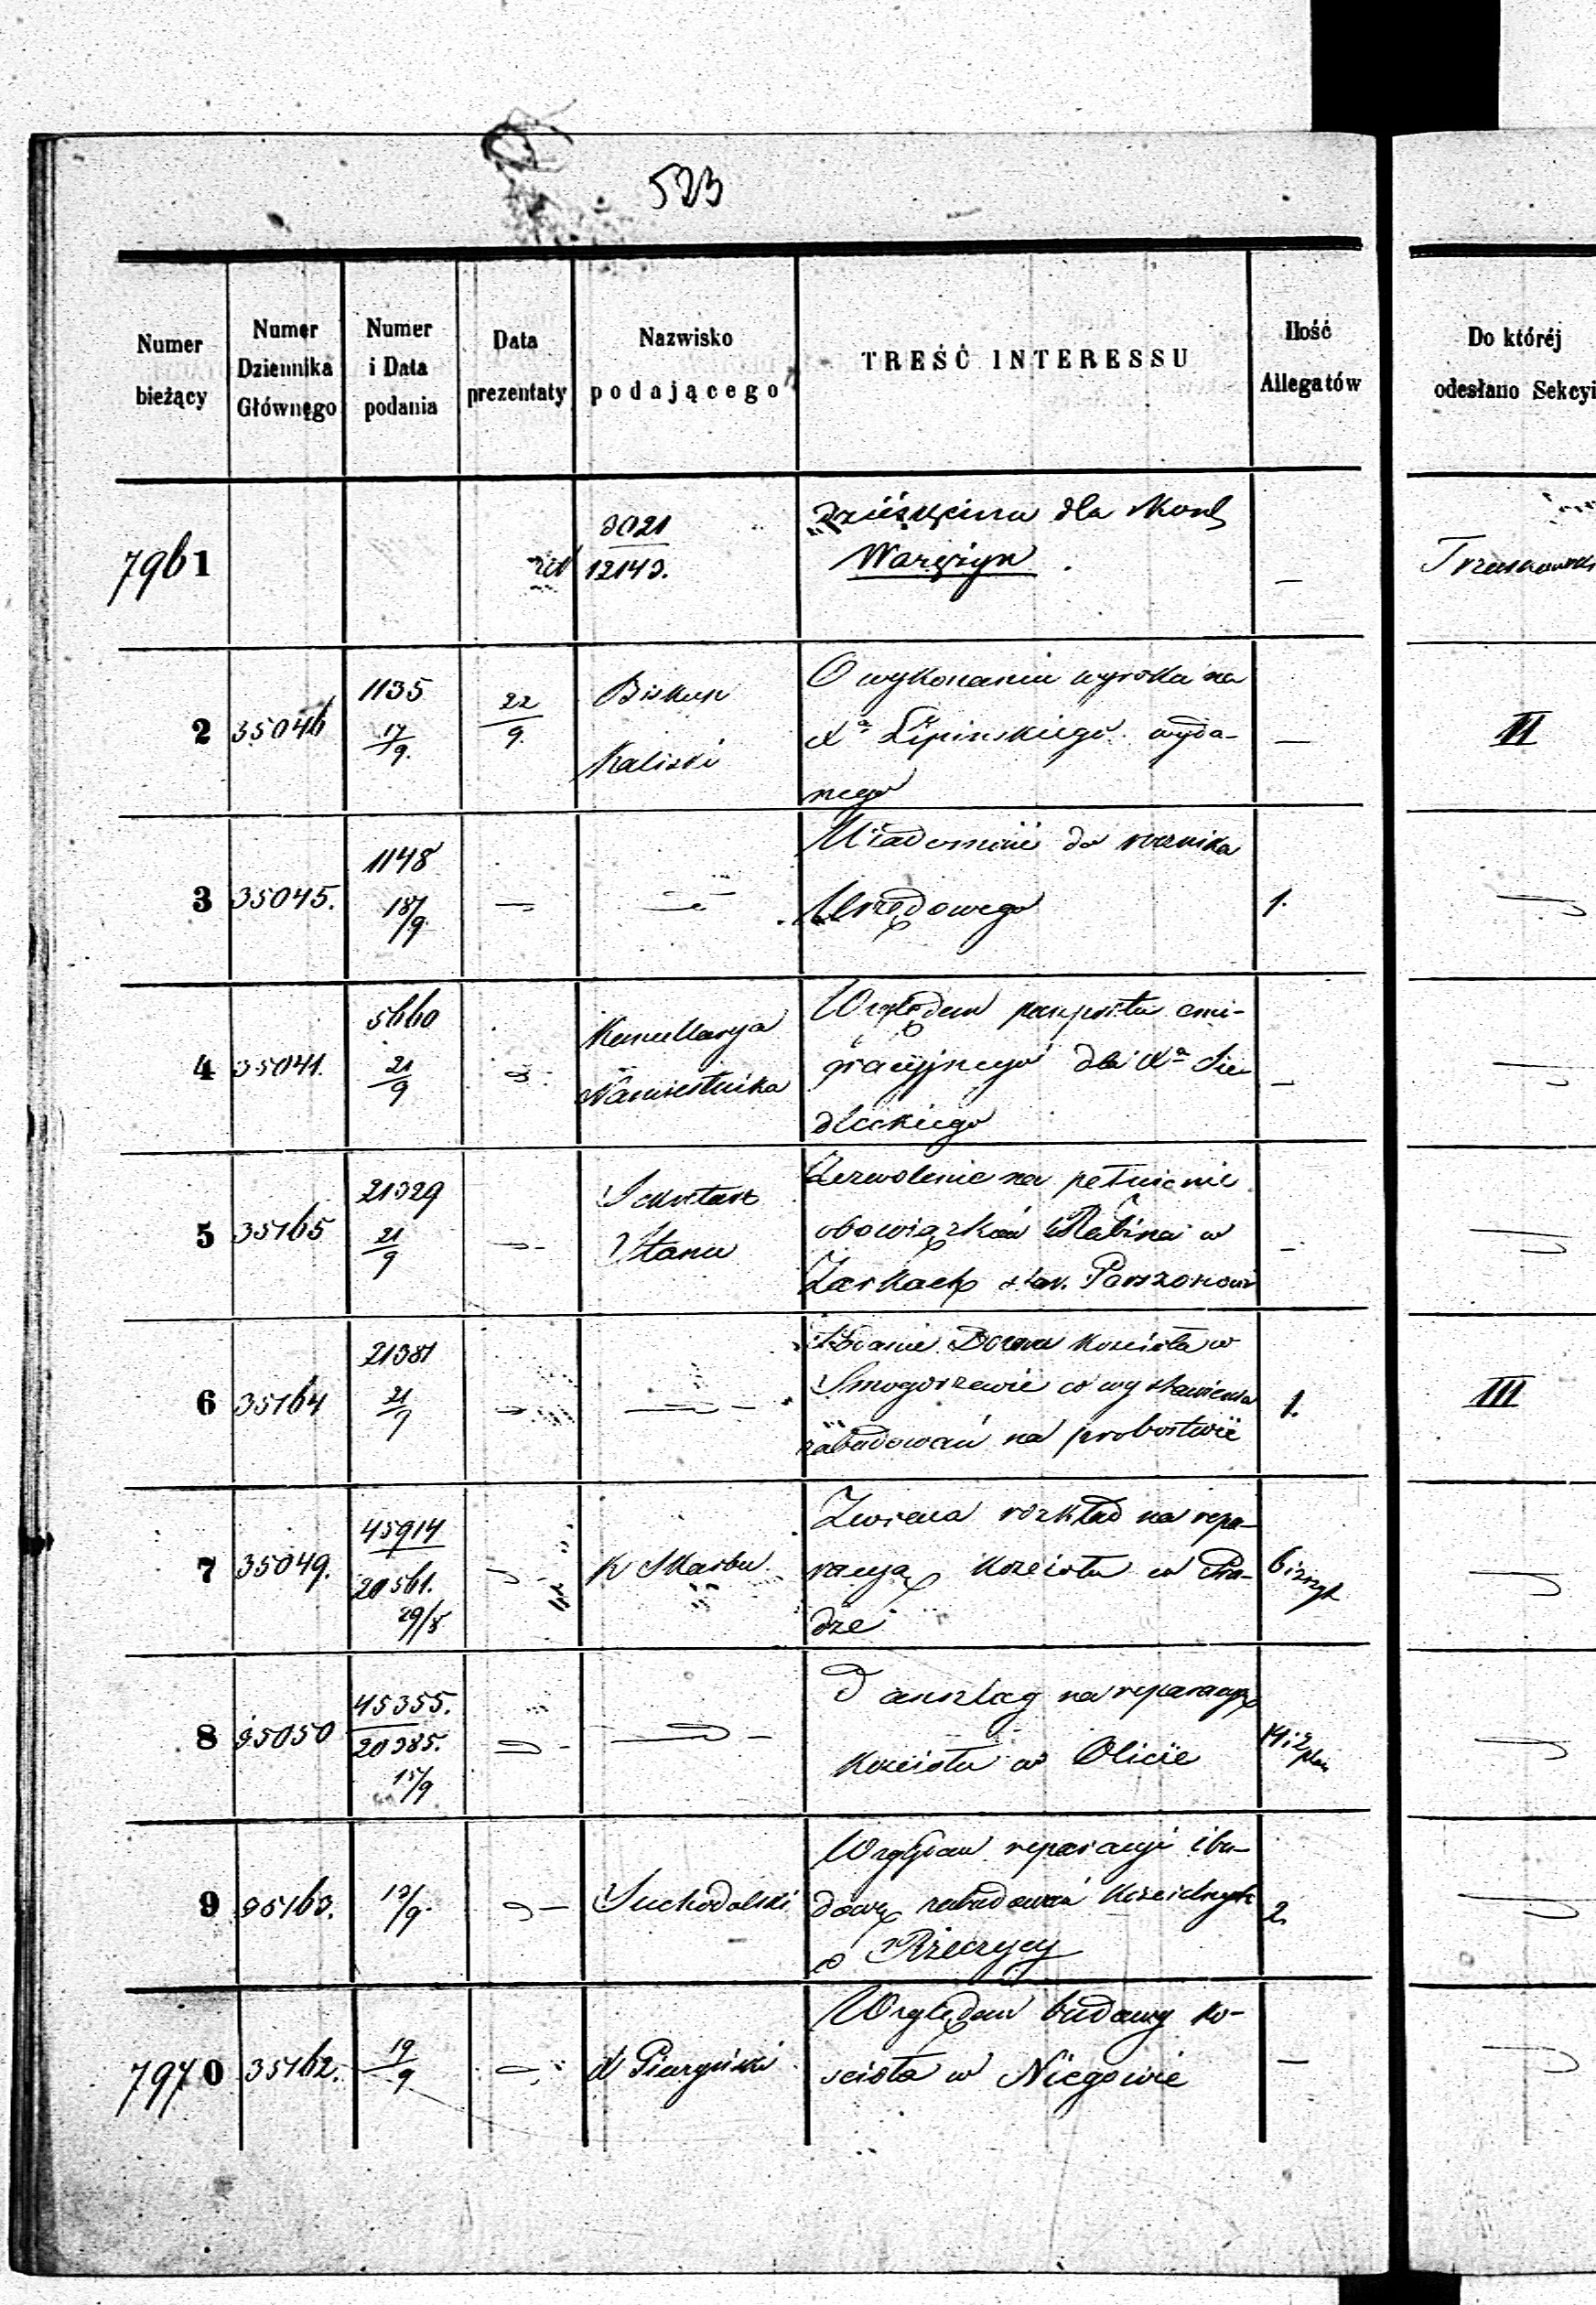 523
Numer bieżący
Numer Dziennika Głównego
Numer i Data podania
Data prezentaty
Nazwisko podającego
TREŚĆ INTERESSU
Ilość Allegatów
Do któréj odesłano Sekcyi
7961
3021
12143.
dla
Waręzyn
—
2
35046
1135
17/9.
22/9.
Biskup
Kaliski
O wykonaniu wyroku na
Xa Lipinskiego wyda-
nego
—
II
3
35045.
1148
18/9
Wiadomości do rocznika
Urzędowego
1.
4
35041.
5660
21/9
Kancellarya
Namiestnika
Względem paszportu emi-
gracyjnego dla Xa Sie-
dleckiego
—
5
35165
21329
21/9
Sekretarz
Stanu
Zezwolenie na pełnienie
obowiązków Rabina w
Żarkach
—
6
35164
21381
21/9
Dozoru kościoła w
Smogorzewie o wystawienia
zabudowań na probostwie
1.
III
7
35049.
45914
20561.
29/8
K Skarbu
Zwraca rozkład na repa-
racyą kościoła w Pra-
dze
6 i
8
35050
45355.
20385.
15/9
anszlag na reparacyę
kościoła w Olicie
14 i 2 plan
9
35163.
13/9
Suchodolski
Względem reparacyi i bu-
dowę zabudowań kościelnych
w Rzeczycy
2.
7970
35162.
19/9
X
Względem budowy ko-
ścioła w Niegowie
—